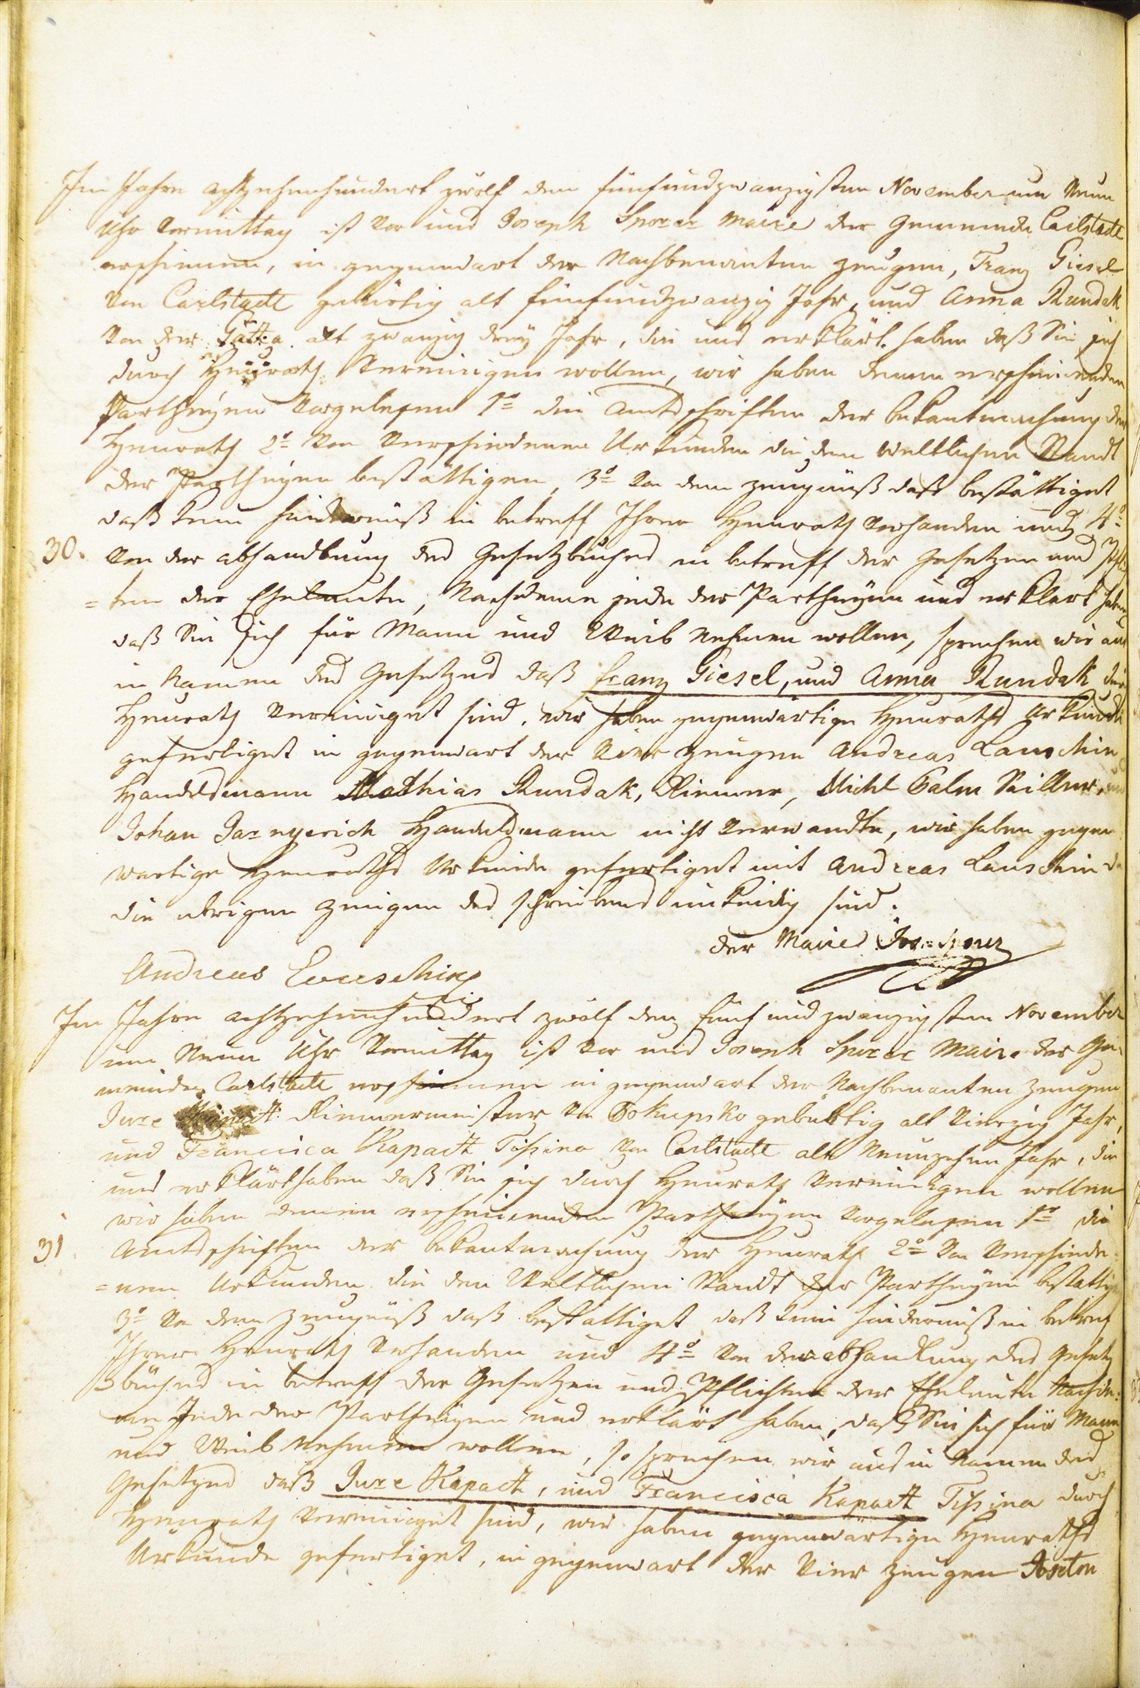 Im Jahre achtzehenhundert zwölf den fünfundzwanzigsten November um Neun
Uhr vormittag ist vor uns Joseph Sporer Maire der Gemeinde Carlstadt
erschienen, in gegenwart der Nachbenanten zeugen, Franz Giesel
von Carlstadt gebürtig alt fünfundzwanzig Jahr, und Anna Rundak
von der alt zwanzig drey Jahr, die uns erklärt haben daß Sie sich
durch Heurath Vereinigen wollen, wir haben denen erscheinenden
Partheyen vorgelesen 1o die Amtsschriften der bekantmachung der
Heurath 2o von verschiedenen Urkunden die den weltlichen Standt
der Partheyen bestättigen, 3o von dem zeugnüß daß bestättiget
daß kein hindernüß in betreff Ihrer Heurath vorhanden und 4o
30. von der abhandlung des Gesetzbuches in betreff der Gesetzen und
=ten der Eheleute, Nachdeme jede der Partheyen uns erklärt haben
daß Sie sich für Mann und Weib Nehmen wollen, sprechen wir aus
in Namen des Gesetzes daß Franz Giesel, und Anna Rundak durch
Heurath vereiniget sind, wir haben gegenwärtige Heuraths Urkunde
gefertiget in gegenwart der vier zeugen Andreas Lauschin
Handelsmann Mathias Rundak, Riemer, Michl Palm Seiller, und
Johan Handelsmann nicht verwandte, wir haben gegen
wartige Heuraths Urkunde gefertiget mit Andreas Lauschin da
die übrigen zeugen des schreibens unkündig sind.
der Maire Jos. Sporer
Andreas Lauschin
Im Jahre achtzehenhundert zwölf den fünfundzwanzigsten November
um Neun Uhr Vormittag ist vor uns Joseph Sporer Maire der Ge=
meinde Carlstadt erschienen in gegenwart der Nachbenanten zeugen
Jure Riemermeister von Pokupsko gebürtig alt vierzig Jahr,
und Francisca Kapactt von Carlstadt alt Neunzehen Jahr, die
uns erklärt haben daß Sie sich durch Heurath Vereinigen wollen
wir haben denen erscheinenden Partheyen vorgelesen 1o die
31. Amtsschriften der bekantmachung der Heurath 2o von verschiede=
=nen Urkunden die den Weltlichen Standt der Partheyen bestättigen
3o von dem zeugnüß daß bestättiget daß kein hindernüß in betreff
Ihrer Heurath vorhanden und 4o von der abhandlung des Gesetz
buches in betreff der Gesetzen und Pflichten der Eheleute Nachde=
me Jede der Partheyen uns erklärt haben, daß Sie sich für Mann
und Weib Nehmen wollen, so sprechen wir aus in Namen des
Gesetzes daß Jure Kapactt, und Francisca Kapactt durch
Heurath vereiniget sind, wir haben gegenwärtige Heuraths
Urkunde gefertiget, in gegenwart der vier zeugen